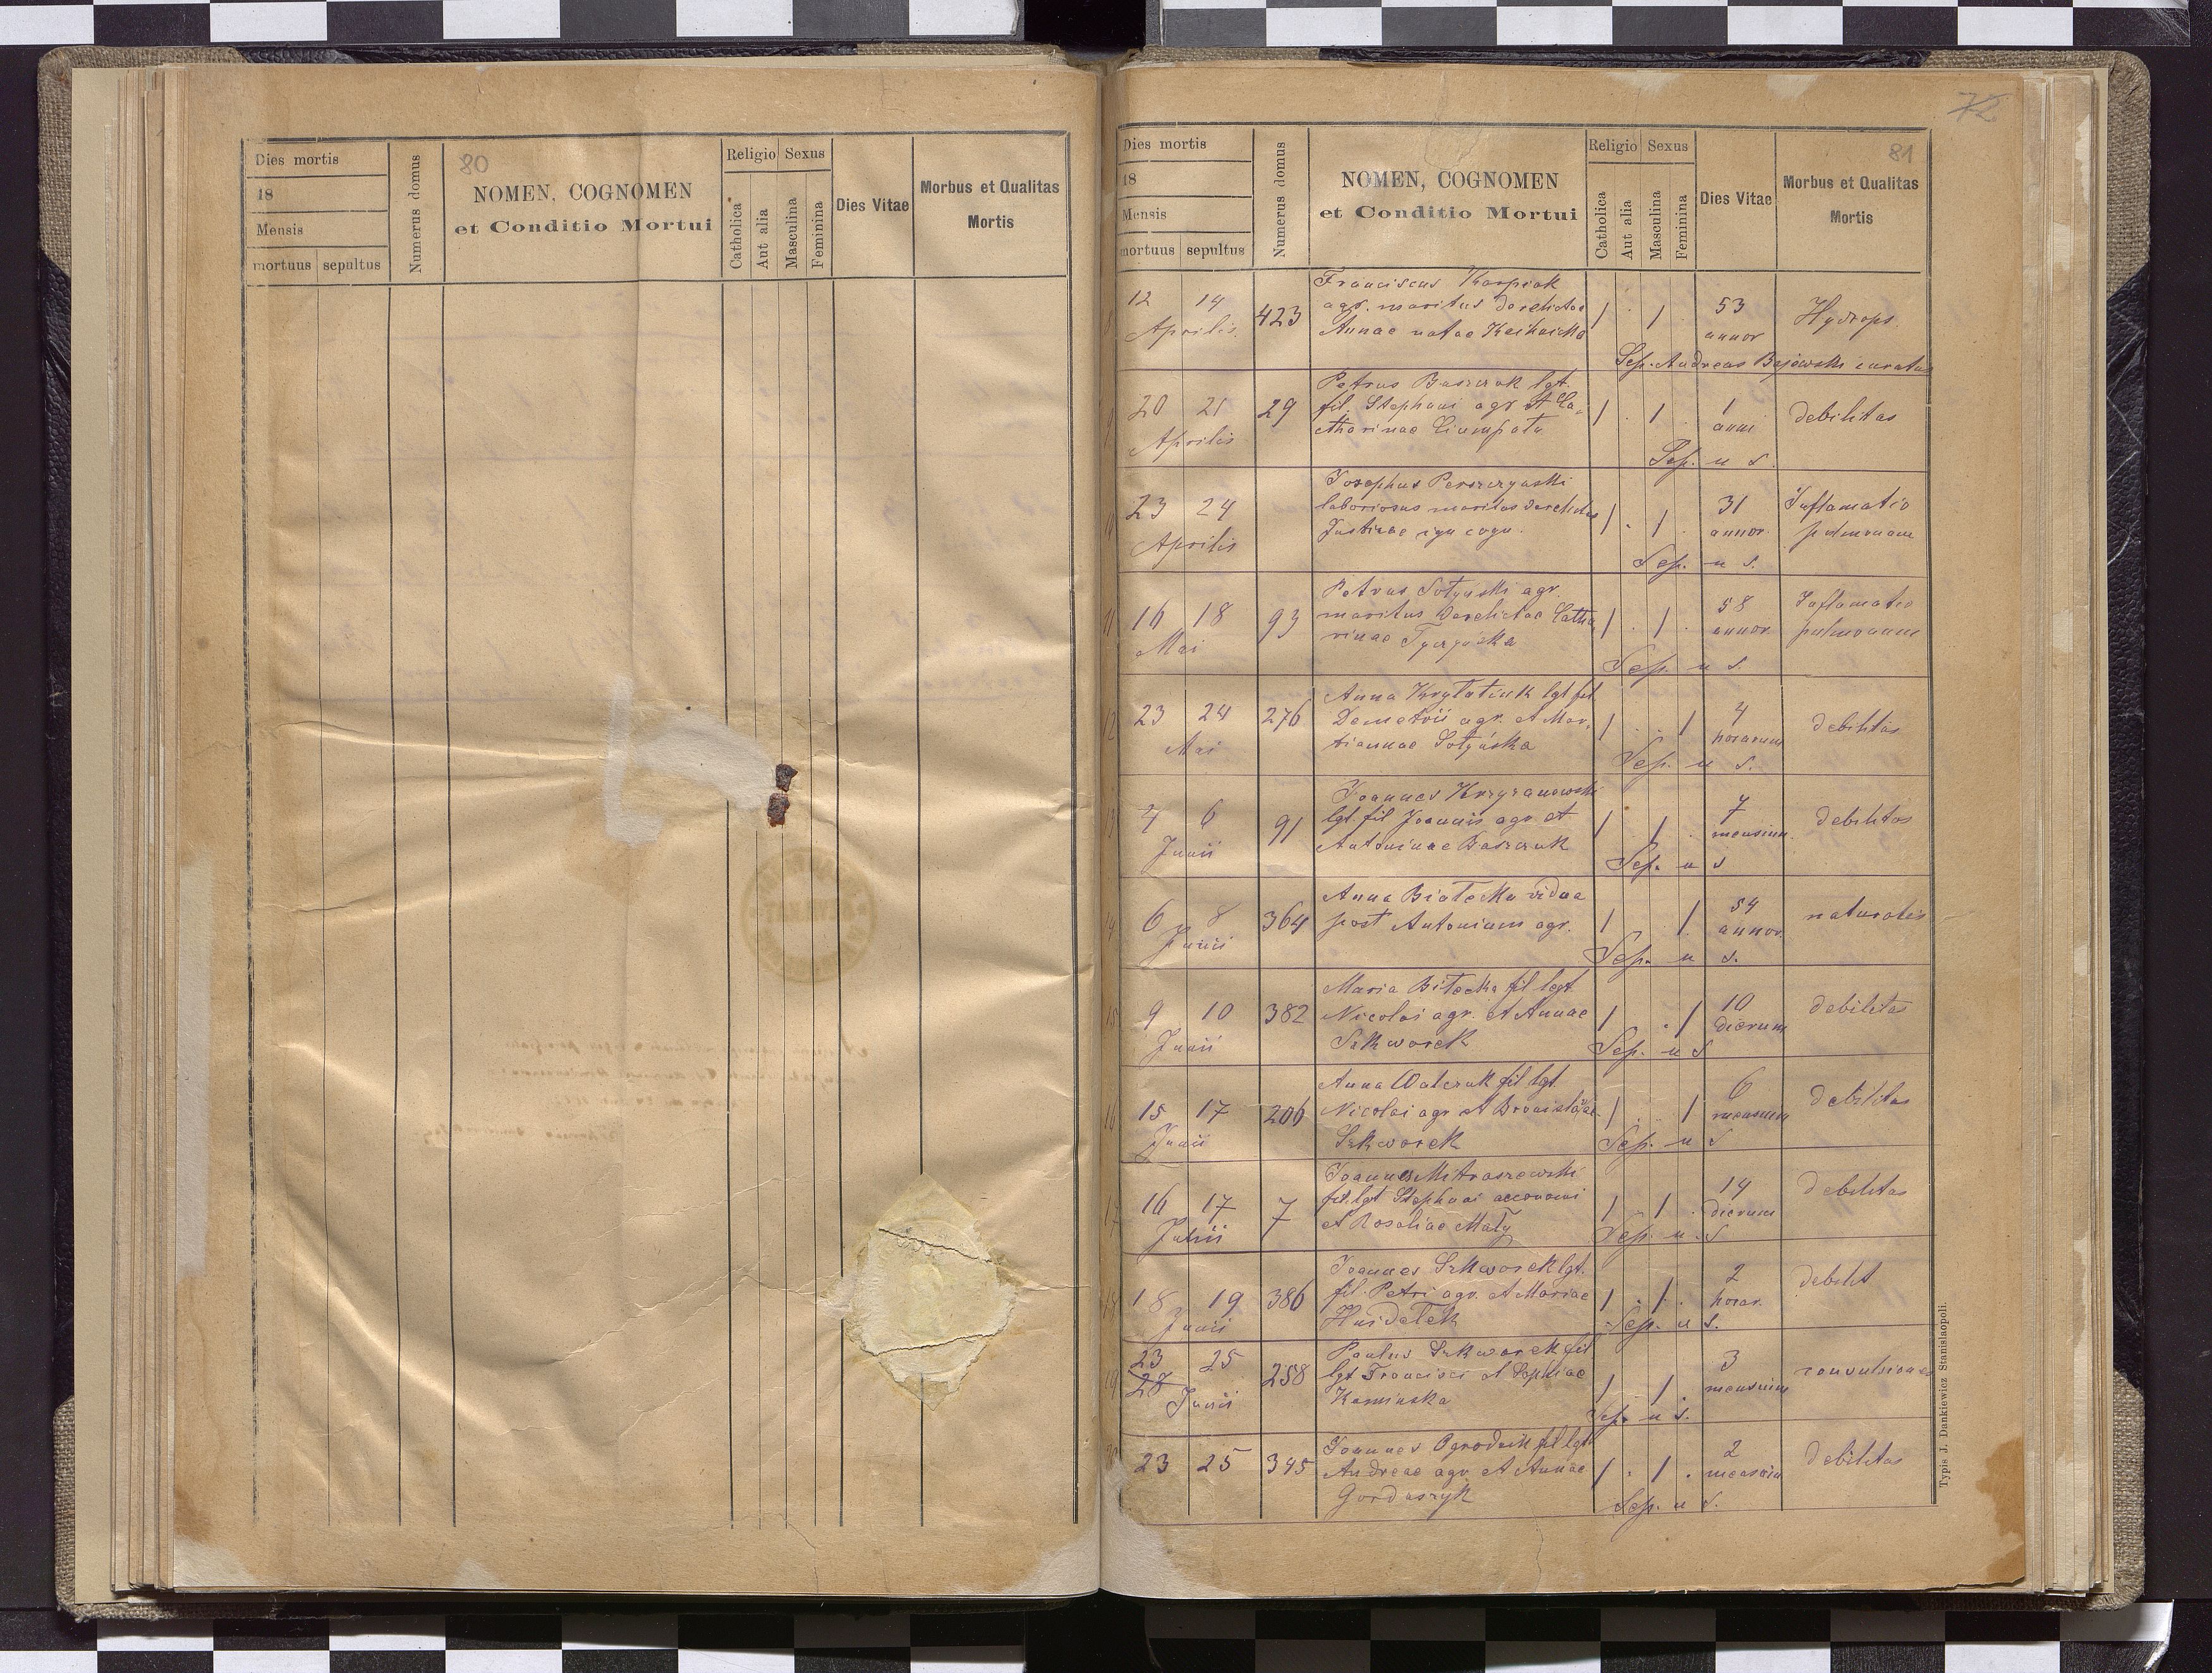 Dies mortis
18
Mensis
mortuus sepultus
Numerus domus
80
NOMEN, COGNOMEN
et Conditio Mortui
Religio Sexus
Catholica
Aut alia
Masculina
Feminina
Dies Vitae
Morbus et Qualitas
Mortis
72
Dies mortis
18
Mensis
mortuus sepultus
Numerus domus
NOMEN, COGNOMEN
et Conditio Mortui
Religio Sexus
Catholica
Aut alia
Masculina
Feminina
Dies Vitae
81
Morbus et Qualitas
Mortis
8 12 14 Aprilis 423
Franciscus Karpiak
agr. maritus derelictae
Annae natae
1 1 53 annor Hydrops
Sep. Andreas Bajewski curatus
9 20 21 Aprilis 29
Petrus Baszczak lgt.
fil. Stephani agr et Ca-
tharinae
1 1 1 anni debilitas
Sep. u s.
10 23 24 Aprilis
Josephus
laboriosus maritus derelictus
Justinae ign cogn.
1 1 31 annor. Inflamatio
pulmonum
Sep. u s.
11 16 18 Mai 93
Petrus Sołyński agr.
maritus derelictae Catha
rinae
1 1 58 annor Inflamatio
pulmonum
Sep. u s.
12 23 24 Mai 276
Anna lgt fil
Demetrii agr. et Mar-
tiannae Sołyńska
1 1 4 horarum debilitas
Sep. u s.
13 4 6 Junii 91
Joannes Krzyzanowski
lgt. fil Joannis agr et
Antoninae Baszczuk
1 1 7 mensium debilitas
Sep. u s
14 6 8 Junii 364
Anna Białecka vidua
post Antonium agr.
1 1 54 annor. naturalis
Sep. u s.
15 9 10 Junii 382
Maria Biłecka fil lgt
Nicolai agr. et Annae
Szkworek
1 1 10 dierum debilitas
Sep. u s
16 15 17 Junii 206
Anna Walczuk fil lgt
Nicolai agr et Bronislavae
Szkworek
1 1 6 mensium debilitas
Sep. u s
17 16 17 Junii 7
Joannes Mitraszewski
fil. lgt Stephani aeconomi
et Rosaliae Mały
1 1 14 dierum debilitas
Sep. u. s
18 18 19 Junii 386
Joannes Szkworek lgt.
fil. Petri agr. et Mariae
1 1 2 horar. debilit
Sep. u s.
19 23 28 25 Junii 258
Paulus Szkworek fil
lgt Francisci et Sophiae
Kaminska
1 1 3 mensium convulsiones
Sep. u s.
20 23 25 345
Joannes Ogrodnik fil lgt
Andreae agr et Annae
Gordaszyk
1 1 2 mensium debilitas
Sep. u s.
Typis J. Dankiewicz Stanislaopoli.